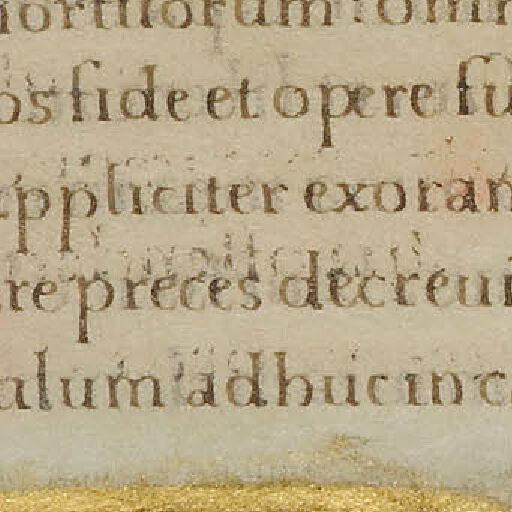 mortuorum comm
os fide et opere su
ppliciter exoram
re preces decreui
alum adhuc in c